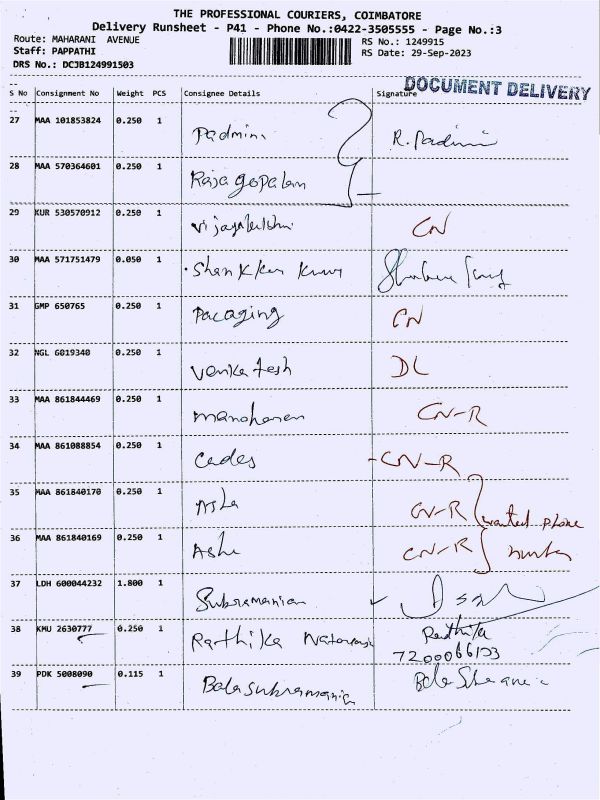 THE PROFESSIONAL COURIERS, COIMBATORE
Delivery Runsheet - P41 - Phone No.:0422-3505555 - Page No.:3
Route: MAHARANI AVENUE
RS No.: 1249915
Staff: PAPPATHI
RS Date: 29-Sep-2023
DRS No.: DCJB124991503
DOCUMENT DELIVERY
S No Consignment No Weight PCS Consignee Details Signature
27 MAA 101853824 0.250 1 Padmini R. Padmini
28 MAA 570364601 0.250 1 Rajagopalan
29 KUR 530570912 0.250 1 Vijayalakshmi CN
30 MAA 571751479 0.050 1 Shankker Kumar
31 GMP 650765 0.250 1 Pacaging CN
32 NGL 6019340 0.250 1 Venkatesh DL
33 MAA 861844469 0.250 1 manoharan CN-R
34 MAA 861088854 0.250 1 Cades -CN-R
35 MAA 861840170 0.250 1 Asha CN-R wanted phone
36 MAA 861840169 0.250 1 Asha CN-R number
37 LDH 600044232 1.800 1 Subramanian
38 KMU 2630777 0.250 1 Rathika Natarajan Radhika
39 PDK 5008090 0.115 1 Balasubramania